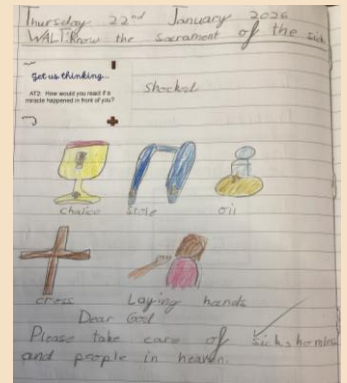 Thursday 22nd January 2026
WALT: Know the Sacrament of the sick
Get us thinking...
AT2: How would you react if a
miracle happened in front of you?
Shocked
Chalice Stole oil
cross Laying hands
Dear God
Please take care of sick, homeless
and people in heaven.